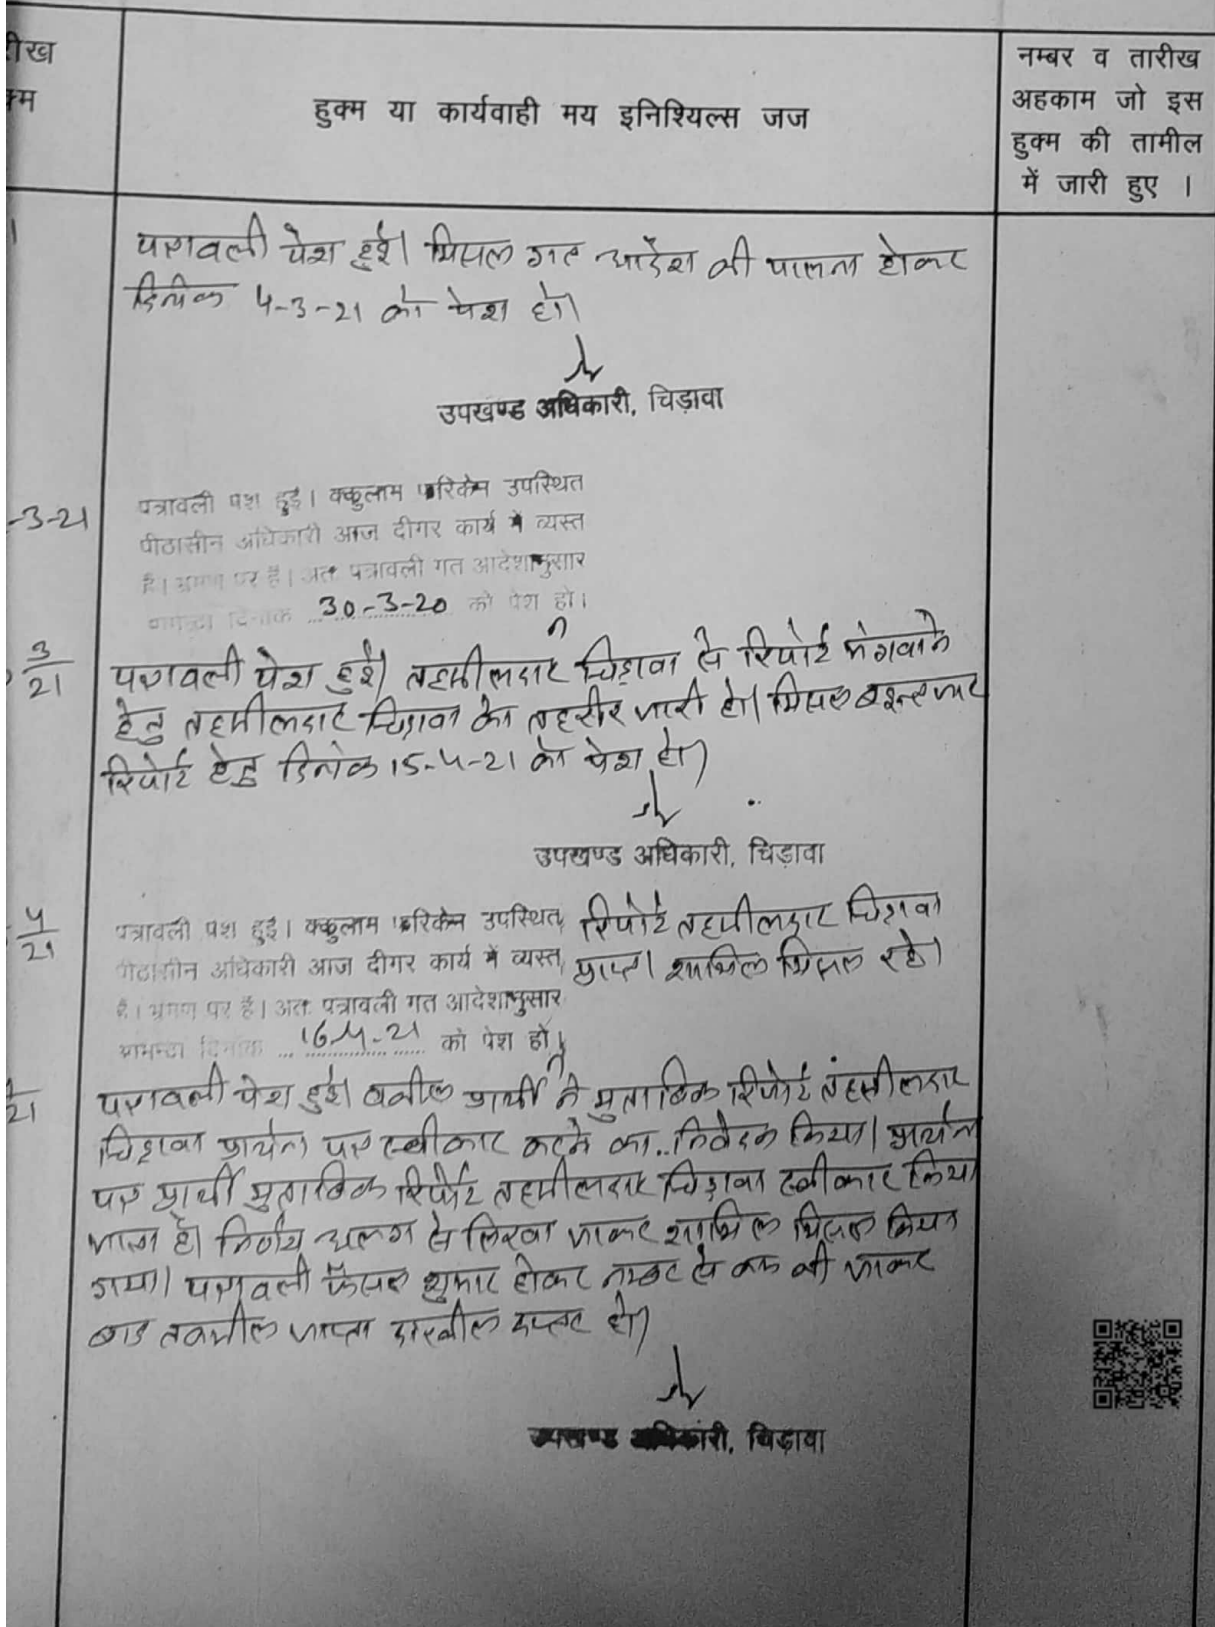 रीख
क्म
हुक्म या कार्यवाही मय इनिश्यिल्स जज
नम्बर व तारीख
अहकाम जो इस
हुक्म की तामील
में जारी हुए ।
पत्रावली पेश हुई। मिसल गत आदेश की पालना होकर
दिनांक 4-3-21 को पेश हो।
उपखण्ड अधिकारी, चिड़ावा
-3-21
पत्रावली पेश हुई। वक्कुलाम फरिकेन उपस्थित
पीठासीन अधिकारी आज दीगर कार्य में व्यस्त
है। भ्रमण पर है। अतः पत्रावली गत आदेशानुसार
दिनांक 30-3-20 को पेश हो।
3/21
पत्रावली पेश हुई। तहसीलदार चिड़ावा से रिपोर्ट मंगवाने
हेतु तहसीलदार चिड़ावा को तहरीर जारी हो। मिसल
रिपोर्ट हेतु दिनांक 15-4-21 को पेश हो।
उपखण्ड अधिकारी, चिड़ावा
4/21
पत्रावली पेश हुई। वक्कुलाम फरिकेन उपस्थित
पीठासीन अधिकारी आज दीगर कार्य में व्यस्त
है। भ्रमण पर है। अतः पत्रावली गत आदेशानुसार
दिनांक 16-4-21 को पेश हो।
रिपोर्ट तहसीलदार चिड़ावा
प्राप्त। शामिल मिसल रहे।
21
पत्रावली पेश हुई। वकील प्रार्थी ने मुताबिक रिपोर्ट तहसीलदार
चिड़ावा प्रार्थना पत्र स्वीकार करने का निवेदन किया। प्रार्थना
पत्र प्रार्थी मुताबिक रिपोर्ट तहसीलदार चिड़ावा स्वीकार किया
जाता है। निर्णय अलग से लिखा जाकर शामिल मिसल किया
गया। पत्रावली फैसल शुमार होकर नम्बर से कम की जाकर
बाद तकमील जाप्ता दाखील दफ्तर हो।
उपखण्ड अधिकारी, चिड़ावा